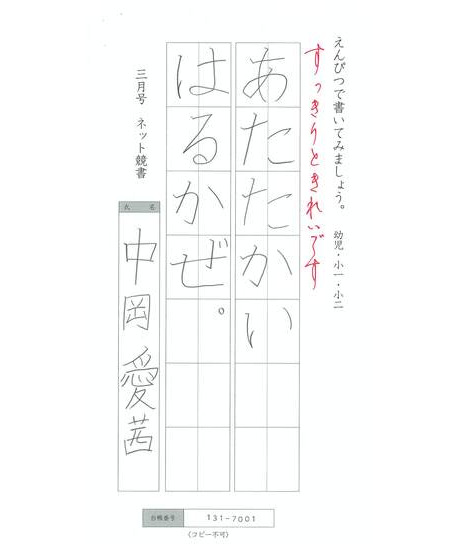 えんぴつで書いてみましょう。 幼児・小一・小二
すっきりときれいです
あたたかい
はるかぜ。
三月号 ネット競書
氏名
中岡愛茜
台帳番号 131-7001
(コピー不可)